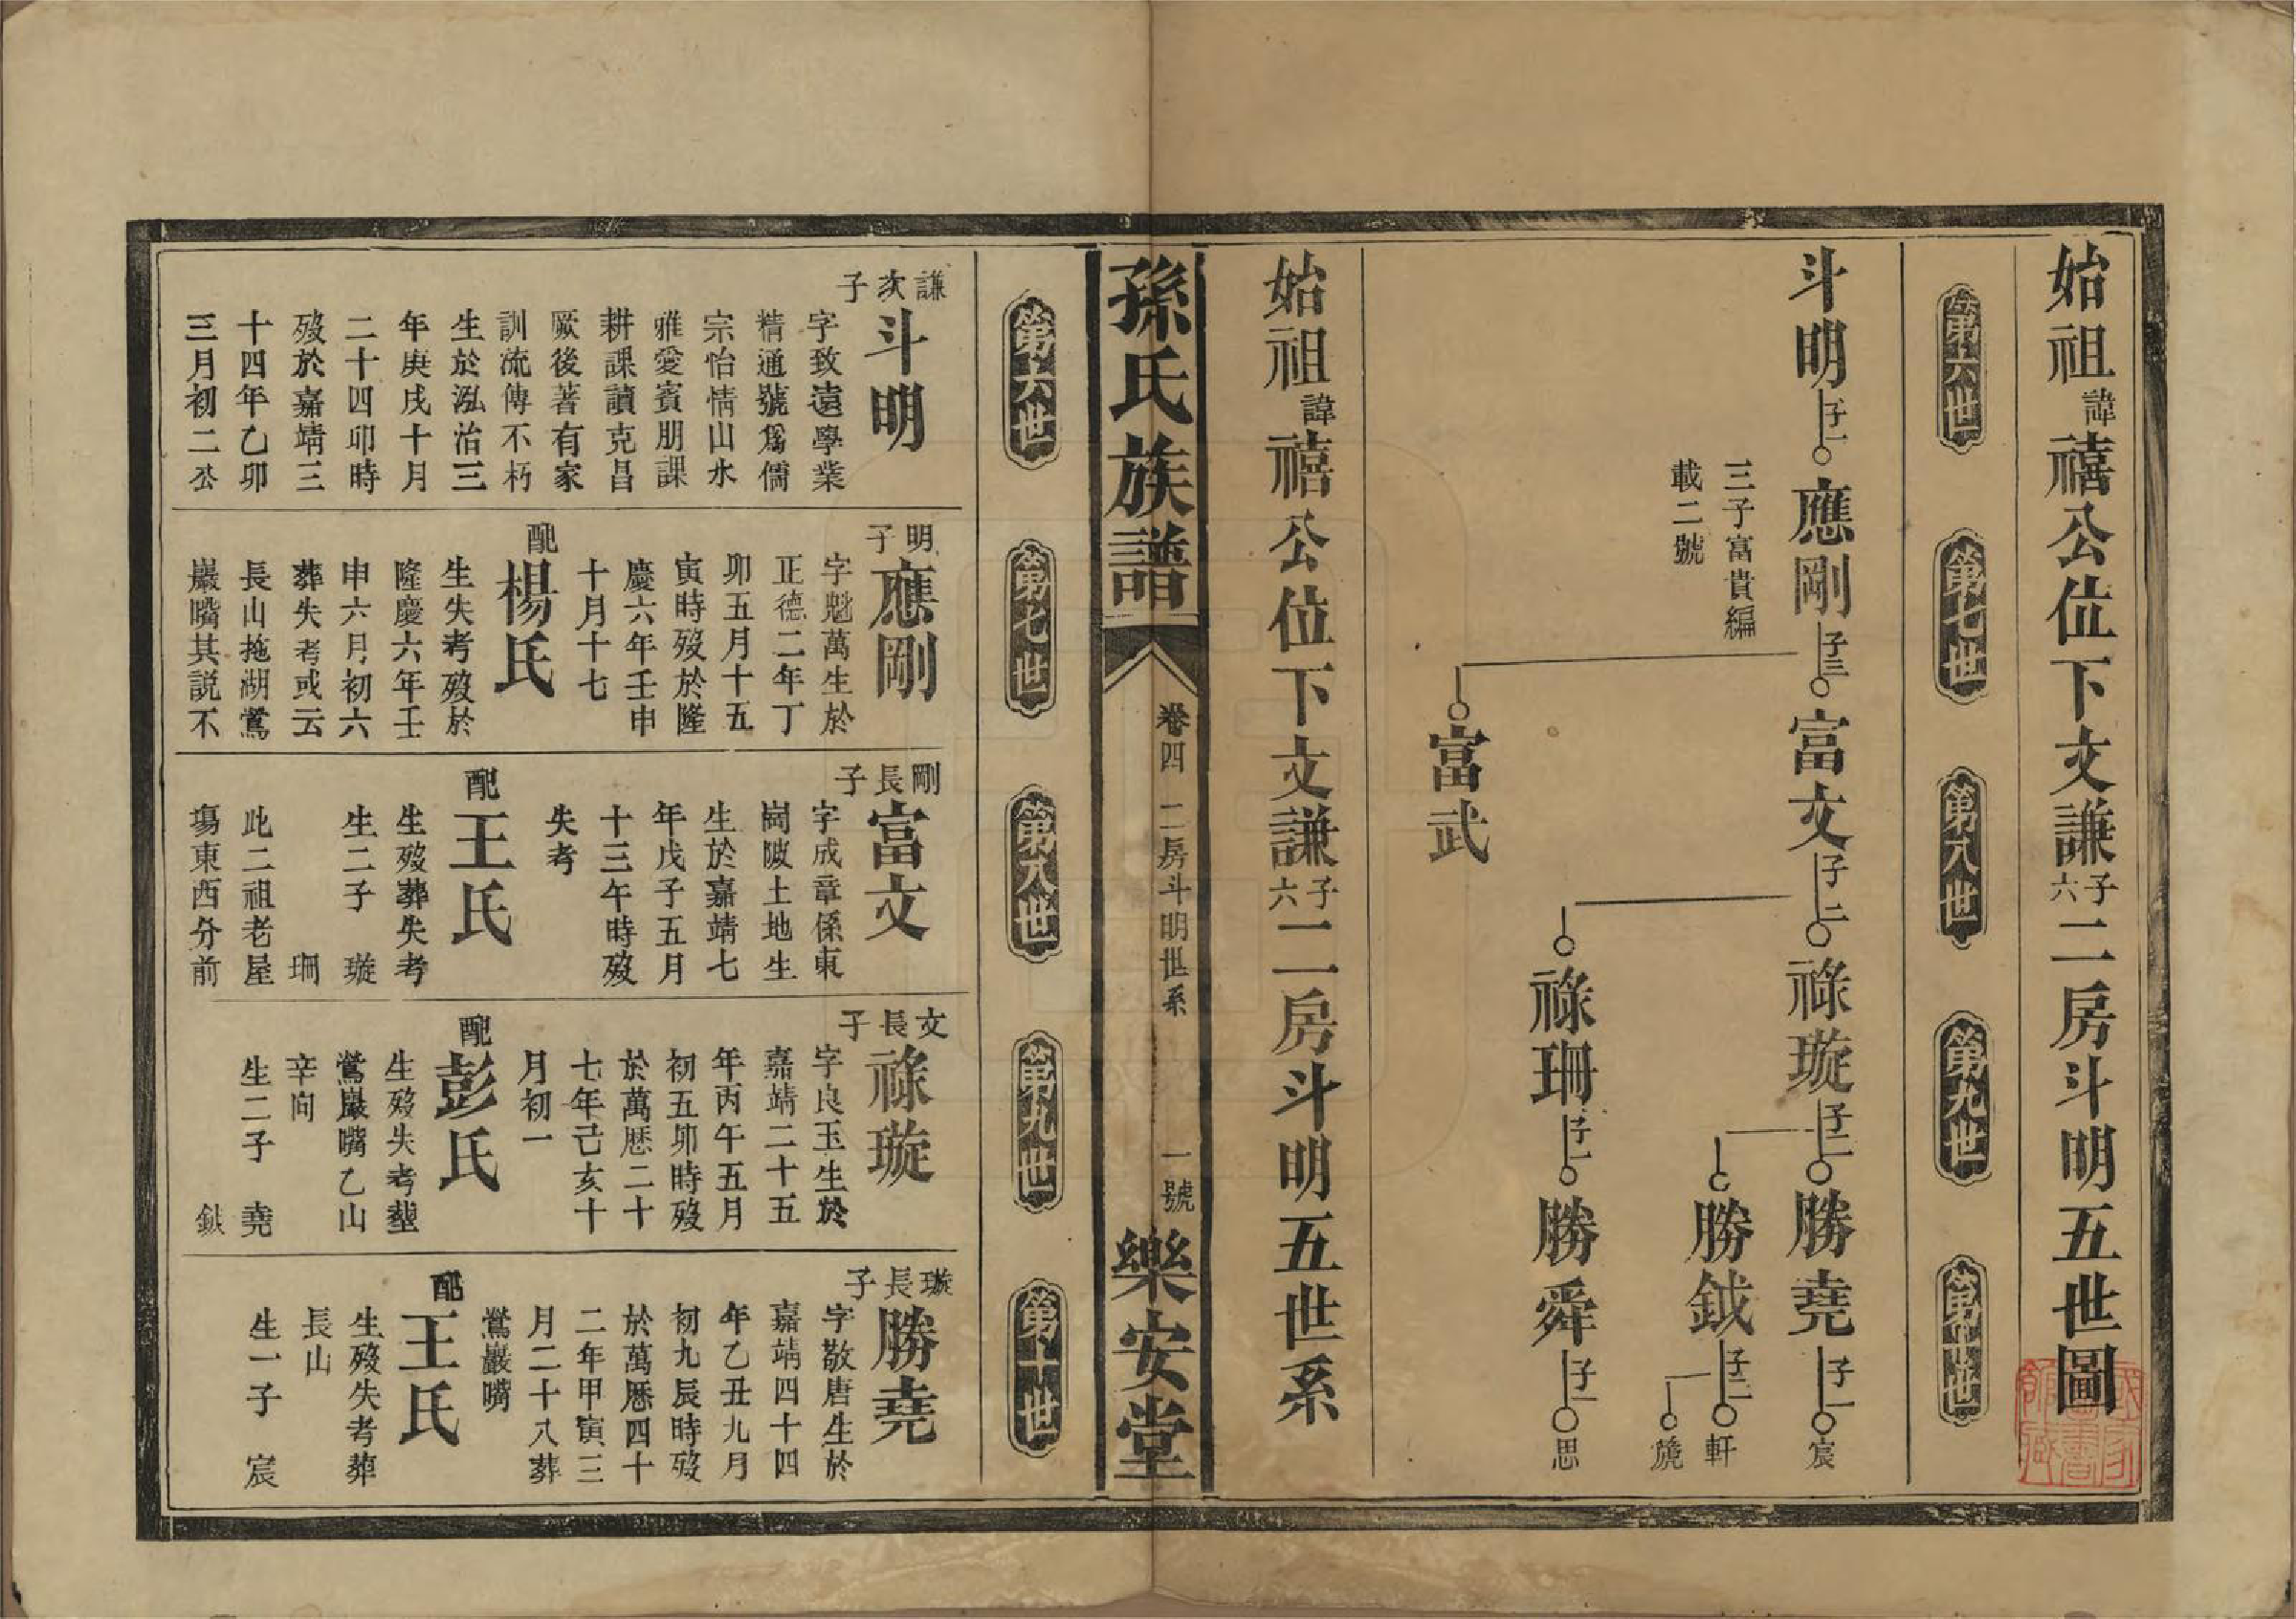 始祖諱禧公位下文謙子六二房斗明五世圖
第六世
第七世
第八世
第九世
第十世
斗明子一應剛子三富文子二祿璇子二勝堯子一宸
三子富貴編
載二號
勝鉞子二軒
旒
祿珊子一勝舜子一思
富武
始祖諱禧公位下文謙子六二房斗明五世系
孫氏族譜 卷四 二房斗明世系 一號 樂安堂
第六世
第七世
第八世
第九世
第十世
謙次子
斗明
字致遠學業
精通號爲儒
宗怡情山水
雅愛賓朋課
耕課讀克昌
厥後著有家
訓流傳不朽
生於泓治三
年庚戌十月
二十四卯時
歿於嘉靖三
十四年乙卯
三月初二公
明子
應剛
字魁萬生於
正德二年丁
卯五月十五
寅時歿於隆
慶六年壬申
十月十七
配
楊氏
生失考歿於
隆慶六年壬
申六月初六
葬失考或云
長山拖湖鶯
巖嘴其説不
剛長子
富文
字成章係東
崗陂土地生
生於嘉靖七
年戊子五月
十三午時歿
失考
配
王氏
生歿葬失考
生二子 璇
珊
此二祖老屋
塲東西分前
文長子
祿璇
字良玉生於
嘉靖二十五
年丙午五月
初五卯時歿
於萬歷二十
七年己亥十
月初一
配
彭氏
生歿失考塟
鶯巖嘴乙山
辛向
生二子 堯
鉞
璇長子
勝堯
字敬唐生於
嘉靖四十四
年乙丑九月
初九辰時歿
於萬歷四十
二年甲寅三
月二十八葬
鶯巖嘴
配
王氏
生歿失考葬
長山
生一子 宸